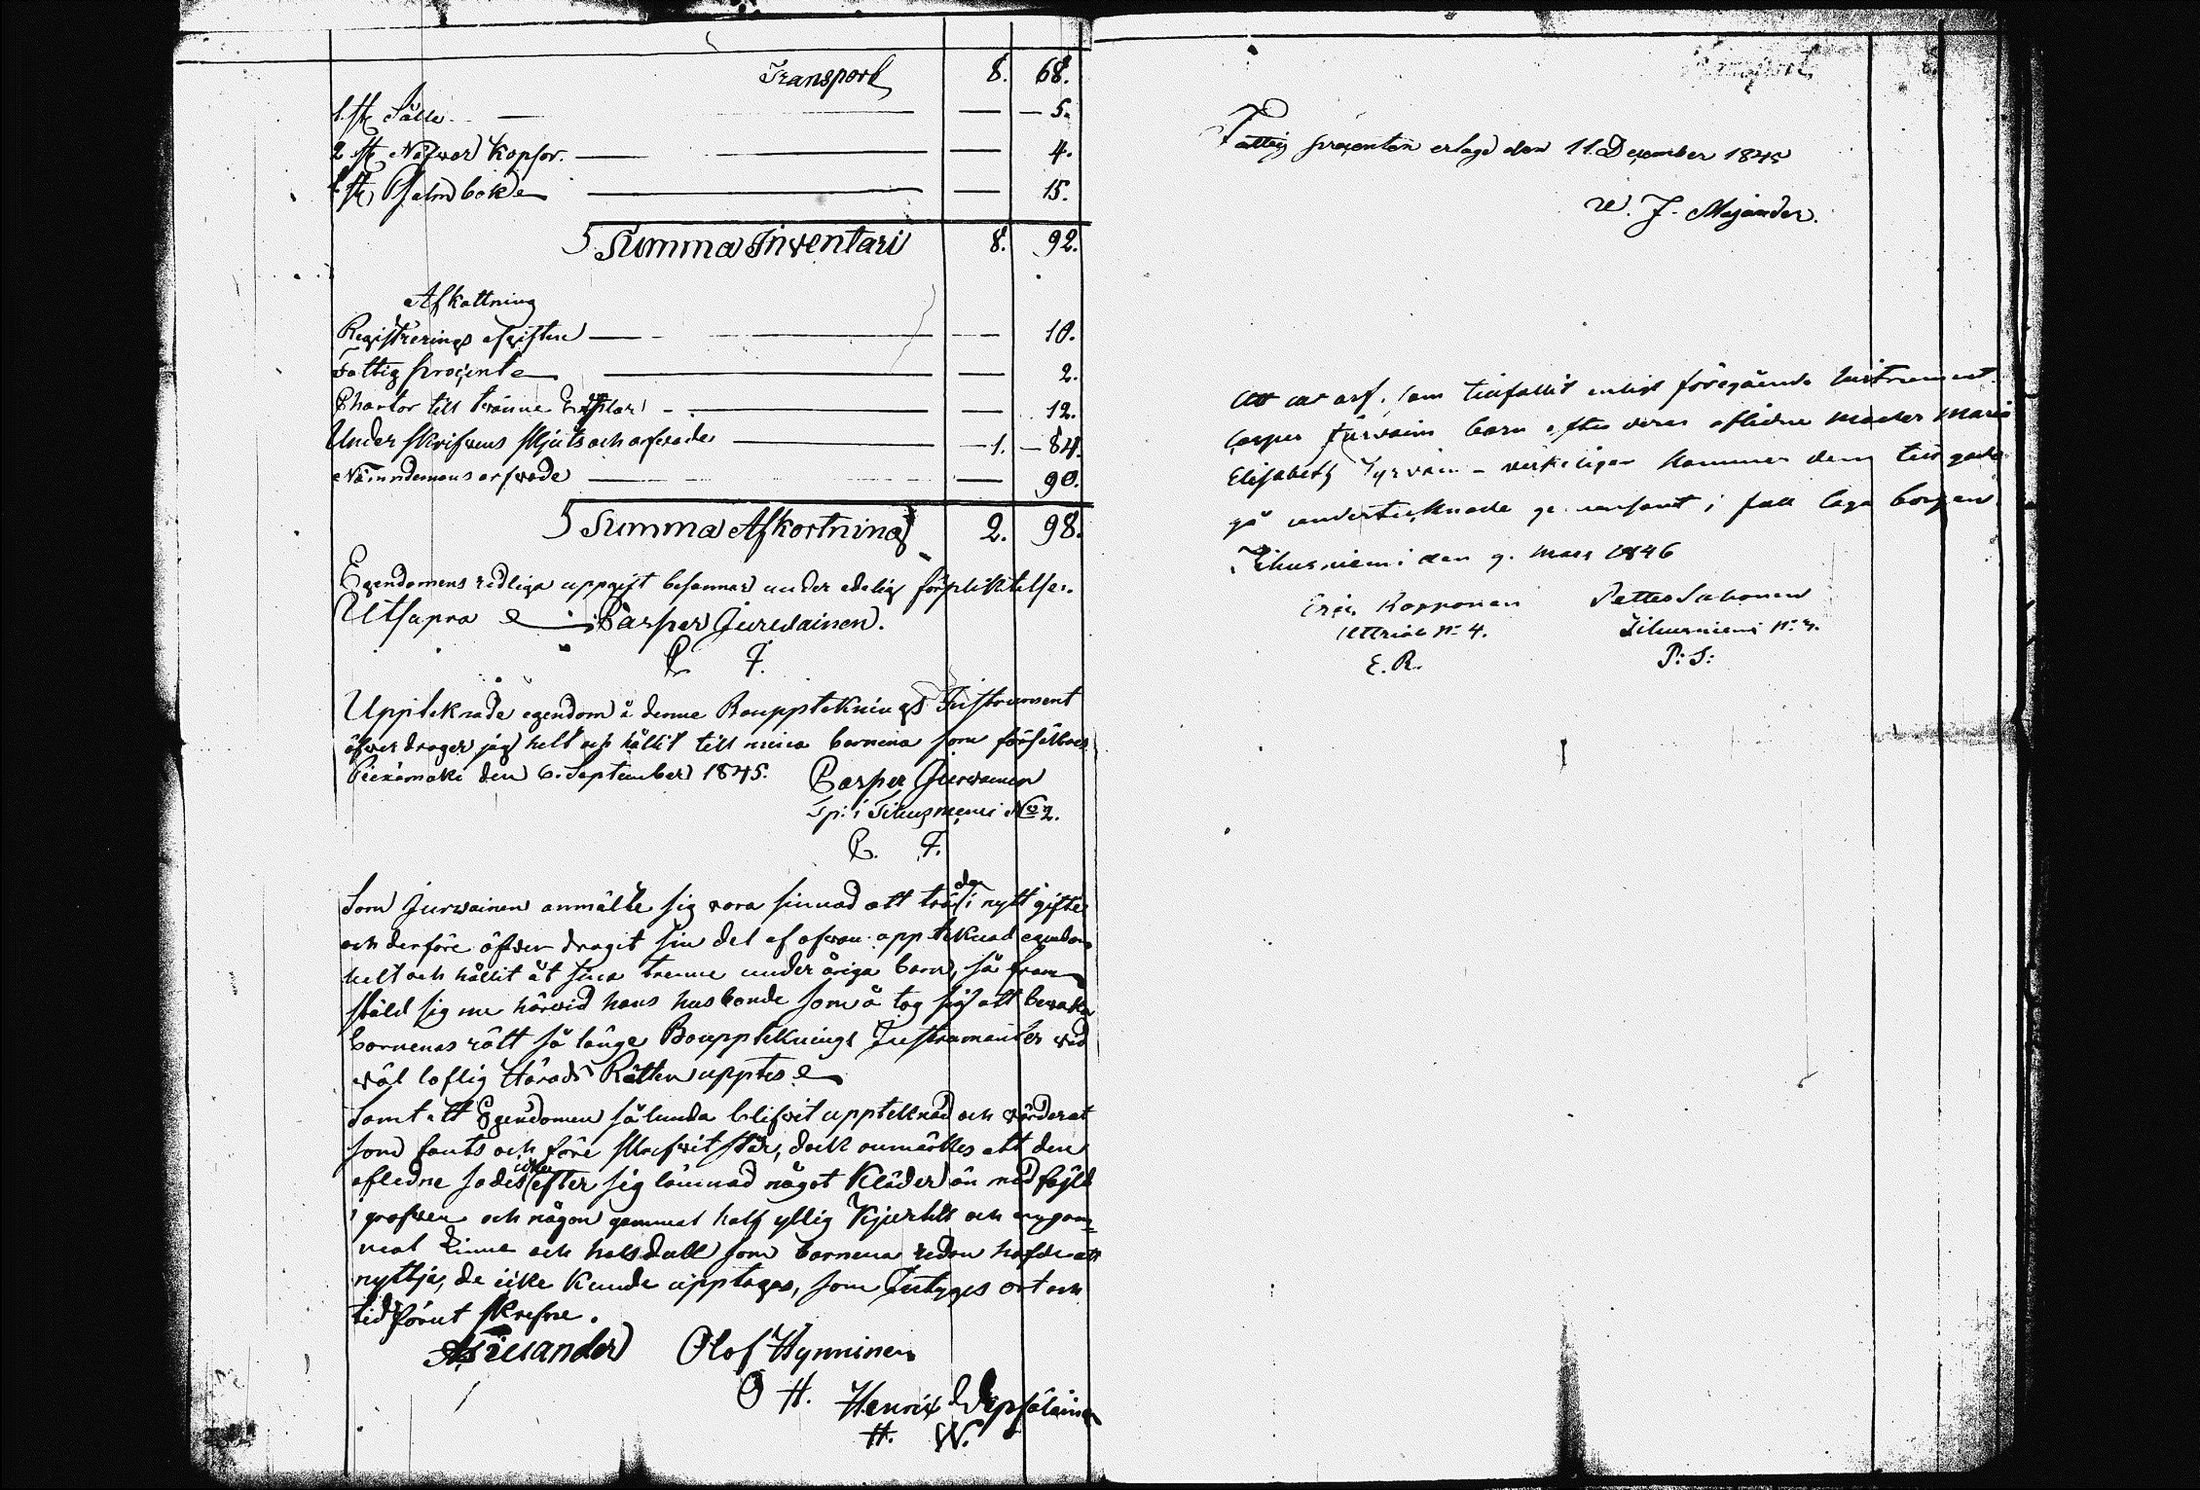 Transport 8. 68.
1. st Sålle — — 5.
2 st Näfwer Kopsor. — — 4.
1. st Psalmbok — — 15.
Summa Inventari 8. 92.
Afkattning
Registrerings afgiften — — 10.
Fattig procente — — 2.
Chartor till tvänne — — 12.
Under skrifwens skjuts och arfwode — 1. — 84.
Nämndemans arfwode — — 90.
Summa Afkortning 2. 98.
Egendomens redliga uppgift besannas under edelig förpliktelse.
Utsupra Casper Jurwainen.
C. J.
Uppteknade egendom å denne Bouppteknings Instrument
öfwerdrager jag helt och hållit till mina barnena som försäkras
Piexämäki den 6. September 1845. Casper Jurwainen
i No 2.
C. J.
Som Jurwainen anmälte sig vara sinnad att träda i nytt gifte
och derföre öfwer dragit sin del af ofwan uppteknad egendom
helt och hållit åt sina trenne under åriga barn, så fram
stäld sig nu härwid hans husbonde som å tog sig att bewaka
barnenas rätt så länge Bouppteknings Instrumentet wid
wäl loflig Härads Rätten upptes
Samt att Egendomen sålunda blifwit uppteknad och wärderat
som fants och före skrefwit står, dock anmärktes att den
afledne icke efter sig lämnad något Kläder än
i grafwen och någon gammal half yllig Kjortel och en gam
mal Linne och halsduk som barnena redan hafde att
nyttja, de icke kunde upptagas, som Intygas ort och
tid förut skrefne.
Olof Hynninen
O H. Henrik
H. W.
Fattig procenten erlagd den 11. December 1845
W. J. Majander.
Att det arf, som tillfallit enligt föregående Instrument
Casper Jurvains barn efter deras aflidne moder Maria
Elisabeth verkeligen kommer dem till godo
gå undertecknade i full laga borgen.
den 9. Mars 1846
Eric Kopponen Petter
N: 4. N:
E. R. P: S: